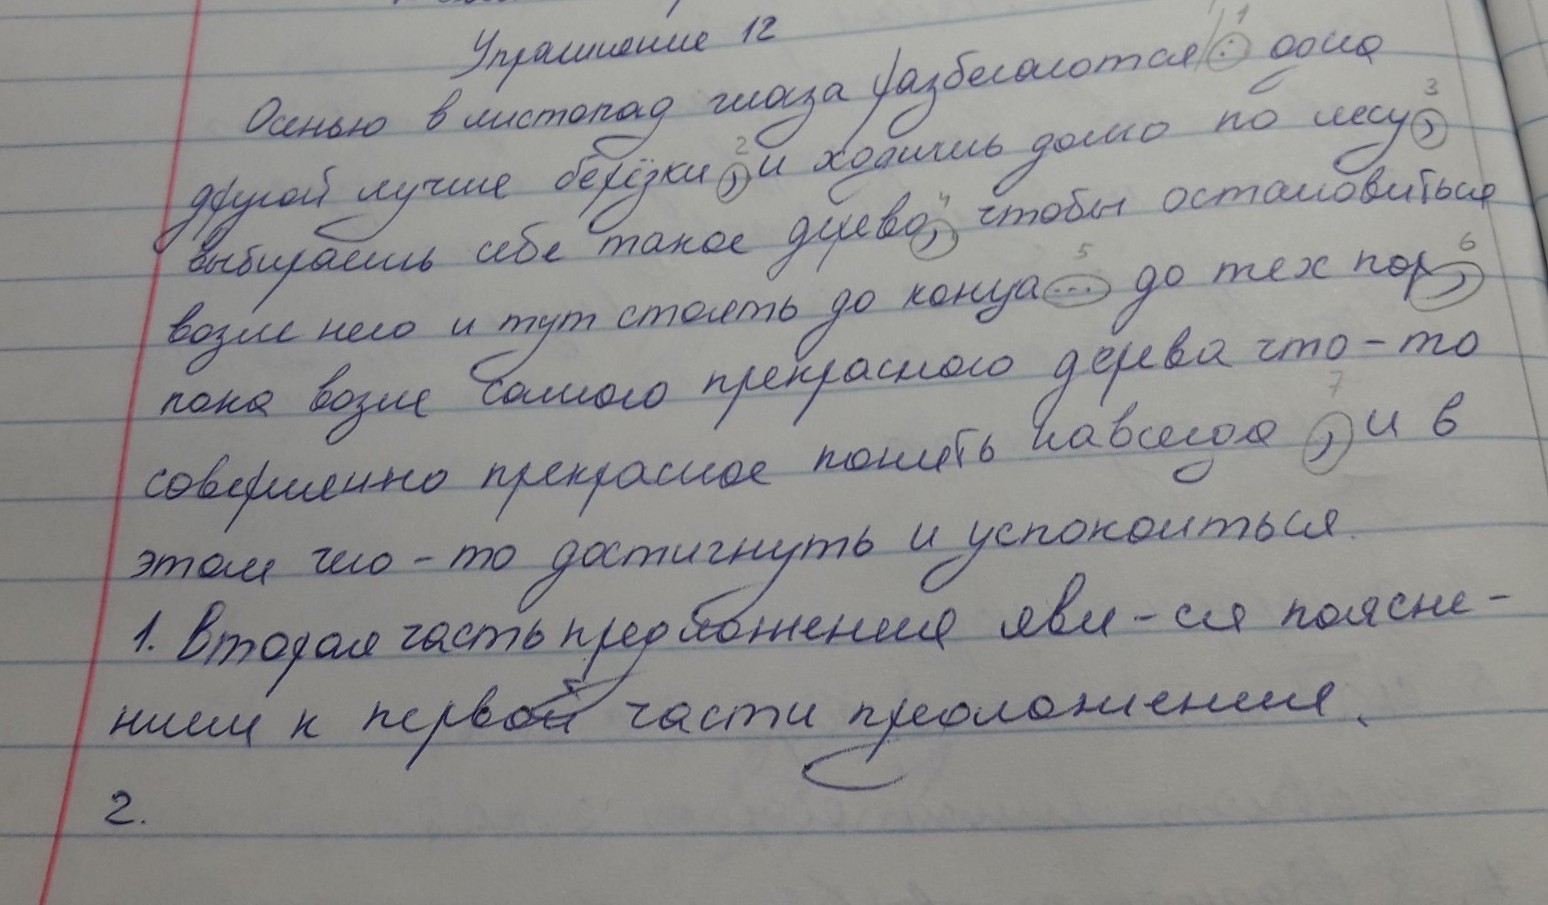 Упражнение 12
1
Осенью в листопад глаза разбегаются : одна
2 3
другой лучше берёзки , и ходишь долго по лесу ,
4
выбираешь себе такое дерево , чтобы остановиться
5 6
возле него и тут стоять до конца ... до тех пор ,
пока возле самого прекрасного дерева что-то
7
совершенно прекрасное понять навсегда , и в
этом чего-то достигнуть и успокоиться.
1. Вторая часть предложения явл-ся поясне-
нием к первой части предложения.
2.